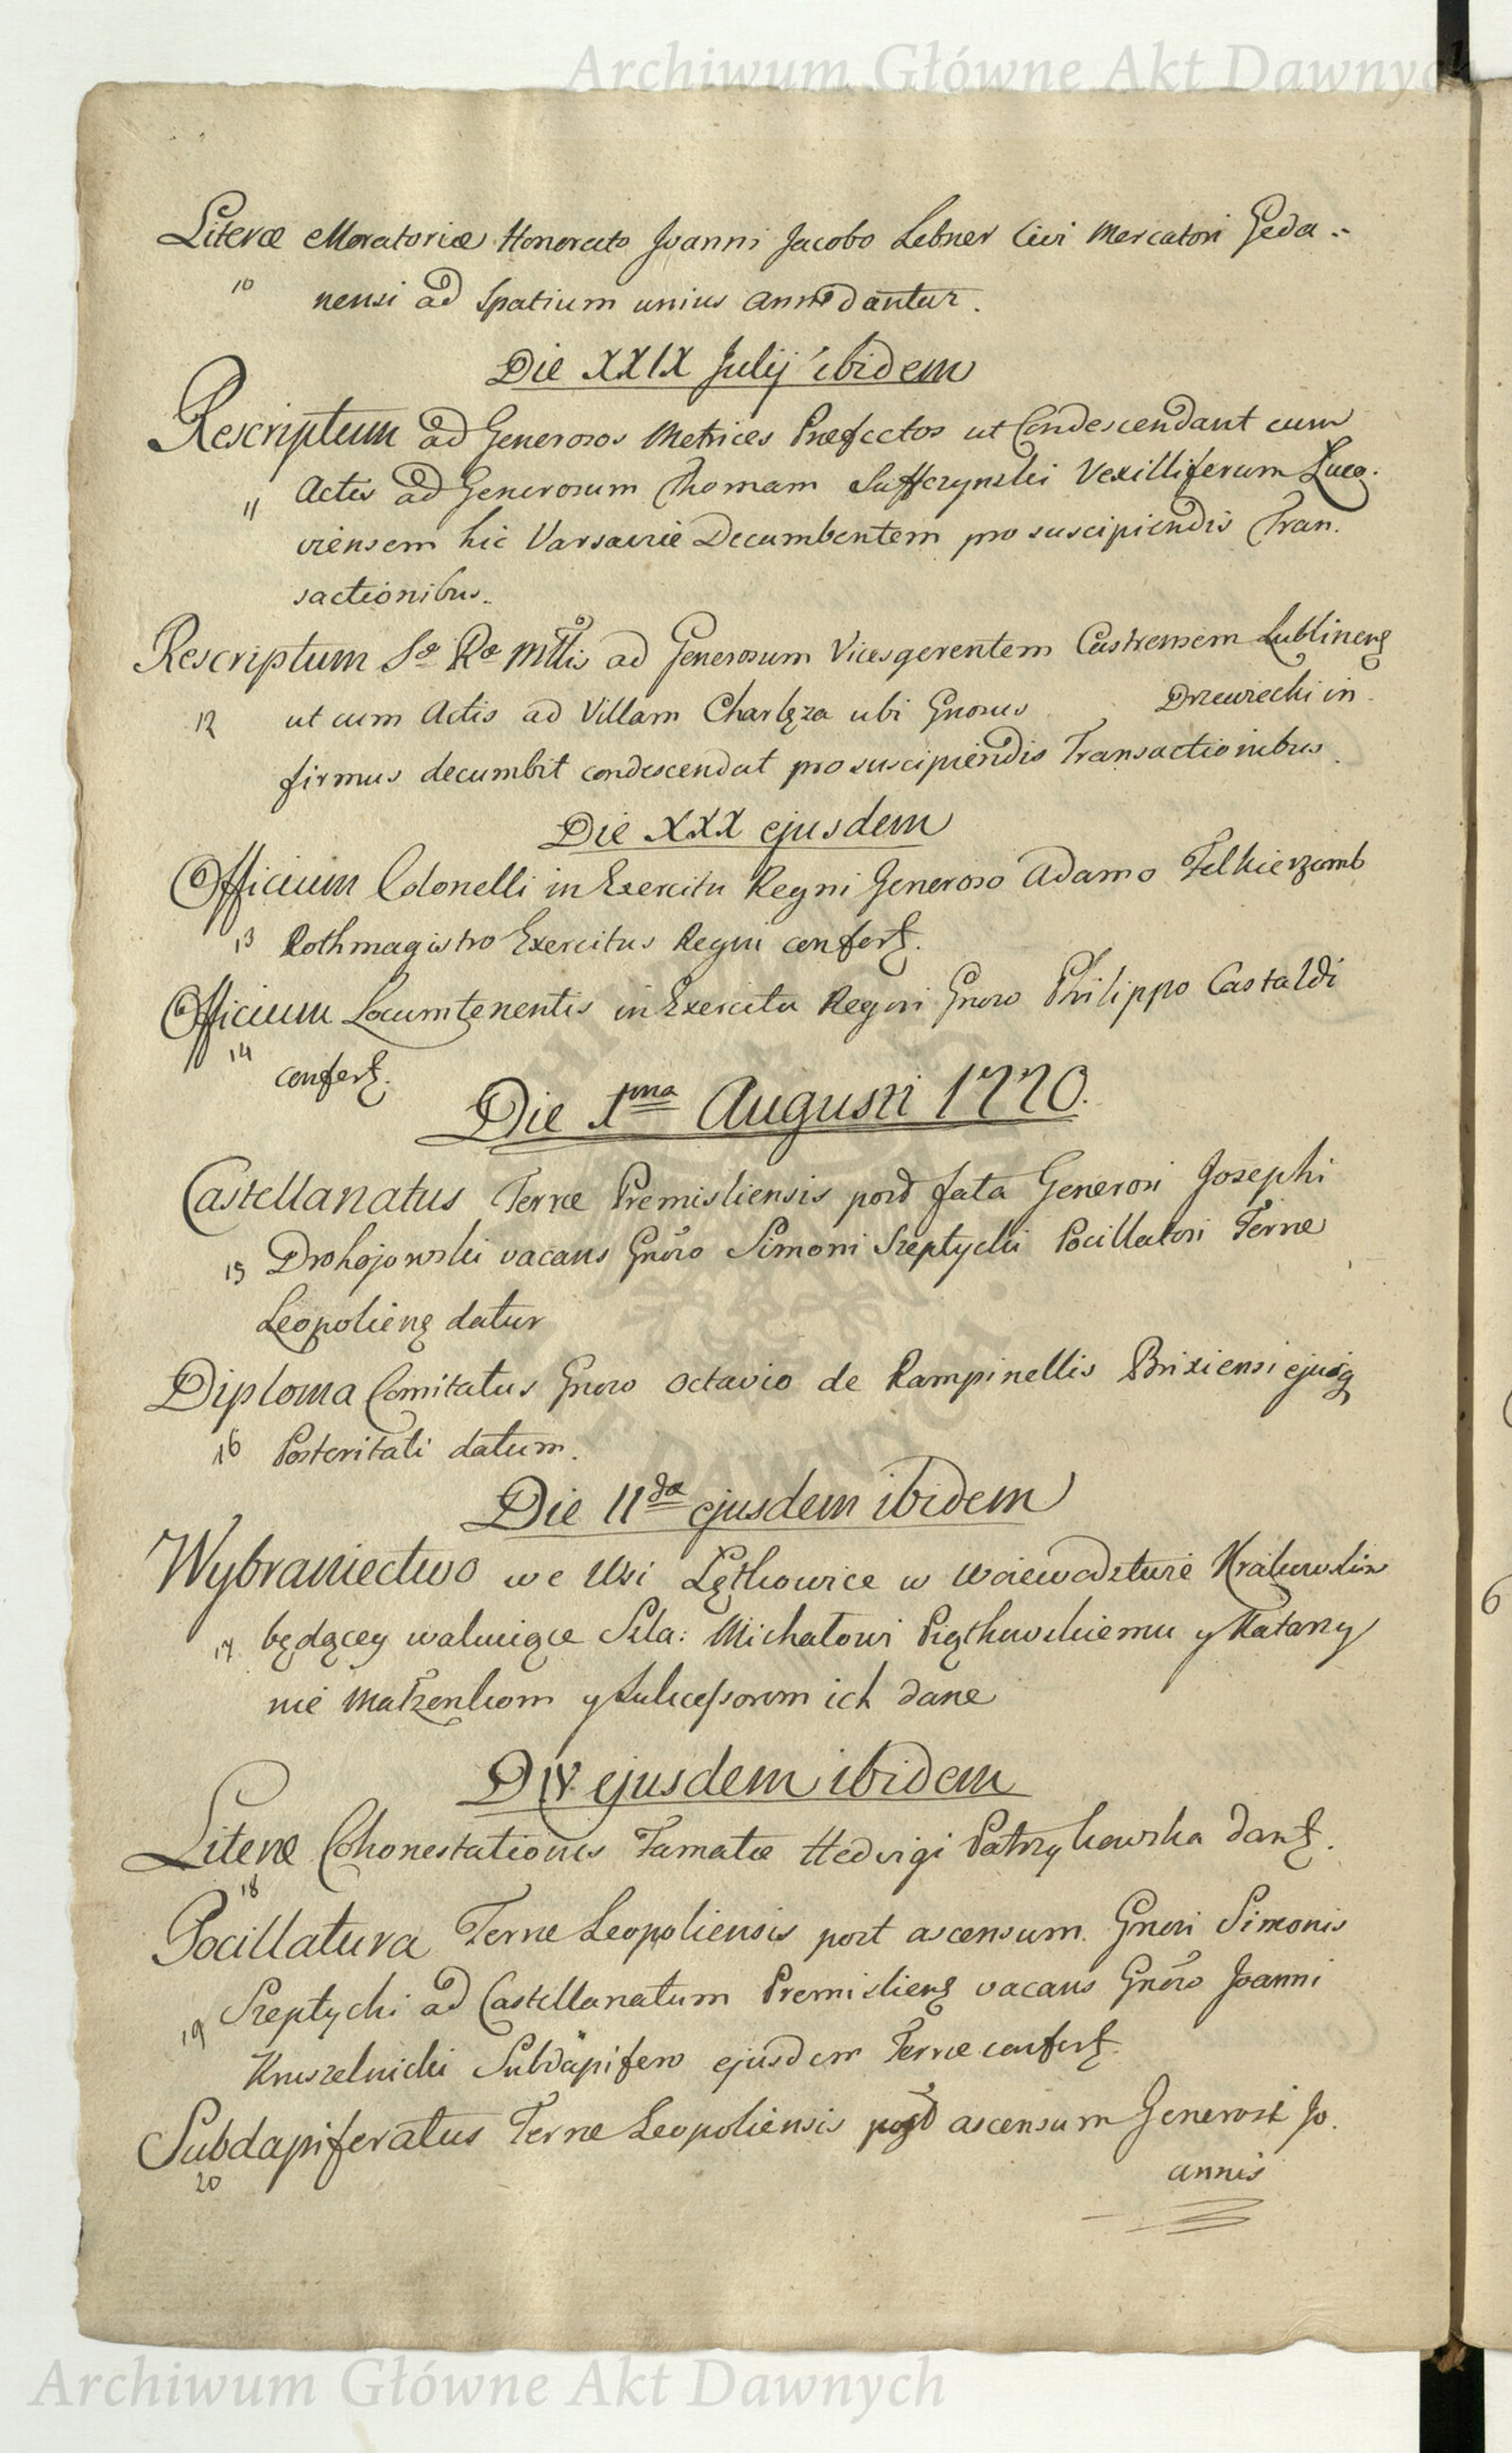 Archiwum Główne Akt Dawnych
Literæ Moratoriæ Honorato Joanni Jacobo Lebner Civi Mercatori Geda-
10 nensi ad Spatium unius anni dantur.
Die XXIX Julij ibidem
Rescriptum ad Generosos Metrices Præfectos ut Condescendant cum
11 Actis ad Generosum Thomam Suffczynski Vexilliferum Luco.
viensem hic Varsaviæ Decumbentem pro suscipiendis Tran.
sactionibus.
Rescriptum Sæ Ræ Mttis ad Generosum Vicesgerentem Castrensem Lublinens
12 ut cum Actis ad Villam Charlęza ubi Gnosus Drzewiecki in.
firmus decumbit condescendat pro suscipiendis Transactionibus.
Die XXX ejusdem
Officium Colonelli in Exercitu Regni Generoso Adamo Felkierzamb
13 Rothmagistro Exercitus Regni confert.
Officium Locumtenentis in Exercitu Regni Gnoro Philippo Castaldi
14 confert.
Die 1ma Augusti 1770.
Castellanatus Terræ Premisliensis post fata Generosi Josephi
15 Drohojowski vacans Gnõro Simoni Szeptycki Pocillatori Terræ
Leopoliens datur
Diploma Comitatus Gnoro Octavio de Rampinellis Brixiensi ejusq
16 Posteritati datum.
Die IIda ejusdem ibidem
Wybraniectwo we Wsi Łętkowice w Woiewodztwie Krakowskim
17 będącey wakuiące Szla: Michałowi Piątkowskiemu y Katarzy
nie Małżonkom y Sukcessorom ich dane
D IV ejusdem ibidem
Literæ Cohonestationis Famatæ Hedvigi Patrzykowska dant.
18
Pocillatura Terræ Leopoliensis post ascensum Gnori Simonis
19 Szeptycki ad Castellanatum Premisliens vacans Gnõro Joanni
Kruszelnicki Subdapifero ejusdem Terræ confert.
Subdapiferatus Terræ Leopoliensis post ascensum Generosi Jo.
20 annis
6
Archiwum Główne Akt Dawnych